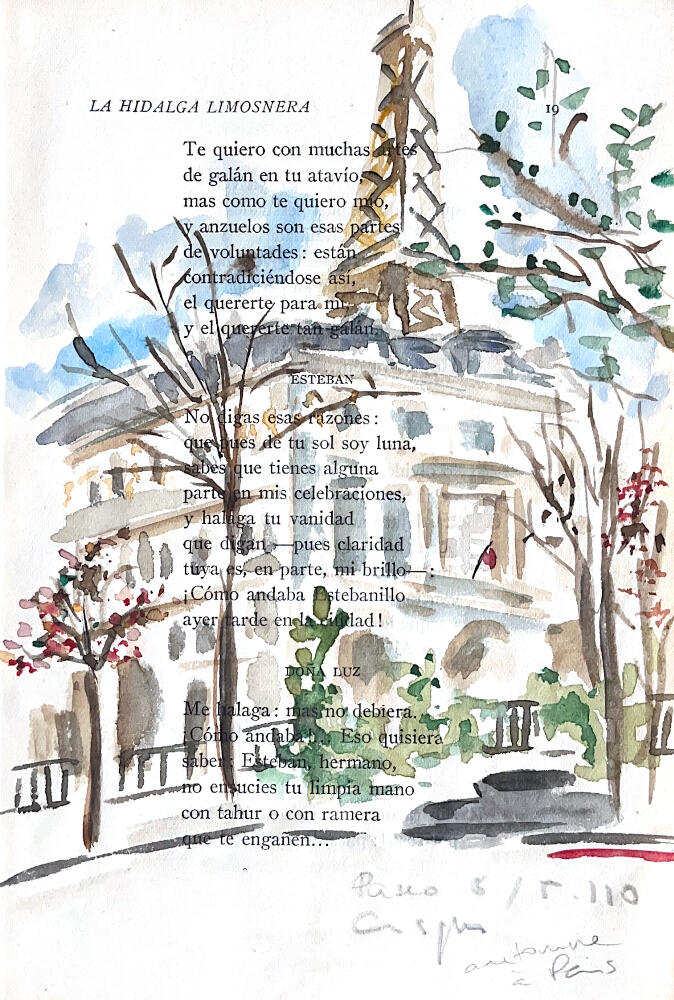 LA HIDALGA LIMOSNERA 19
Te quiero con muchas artes
de galán en tu atavío,
mas como te quiero mío,
y anzuelos son esas partes
de voluntades: están
contradiciéndose así,
el quererte para mí,
y el quererte tan galán.
ESTEBAN
No digas esas razones:
que pues de tu sol soy luna,
sabes que tienes alguna
parte en mis celebraciones,
y halaga tu vanidad
que digan —pues claridad
tuya es, en parte, mi brillo—:
¡Cómo andaba Estebanillo
ayer tarde en la ciudad!
DOÑA LUZ
Me halaga: mas no debiera.
¡Cómo andaba!... Eso quisiera
saber: Esteban, hermano,
no ensucies tu limpia mano
con tahur o con ramera
que te engañen...
5 / 5.110
automne
à Paris